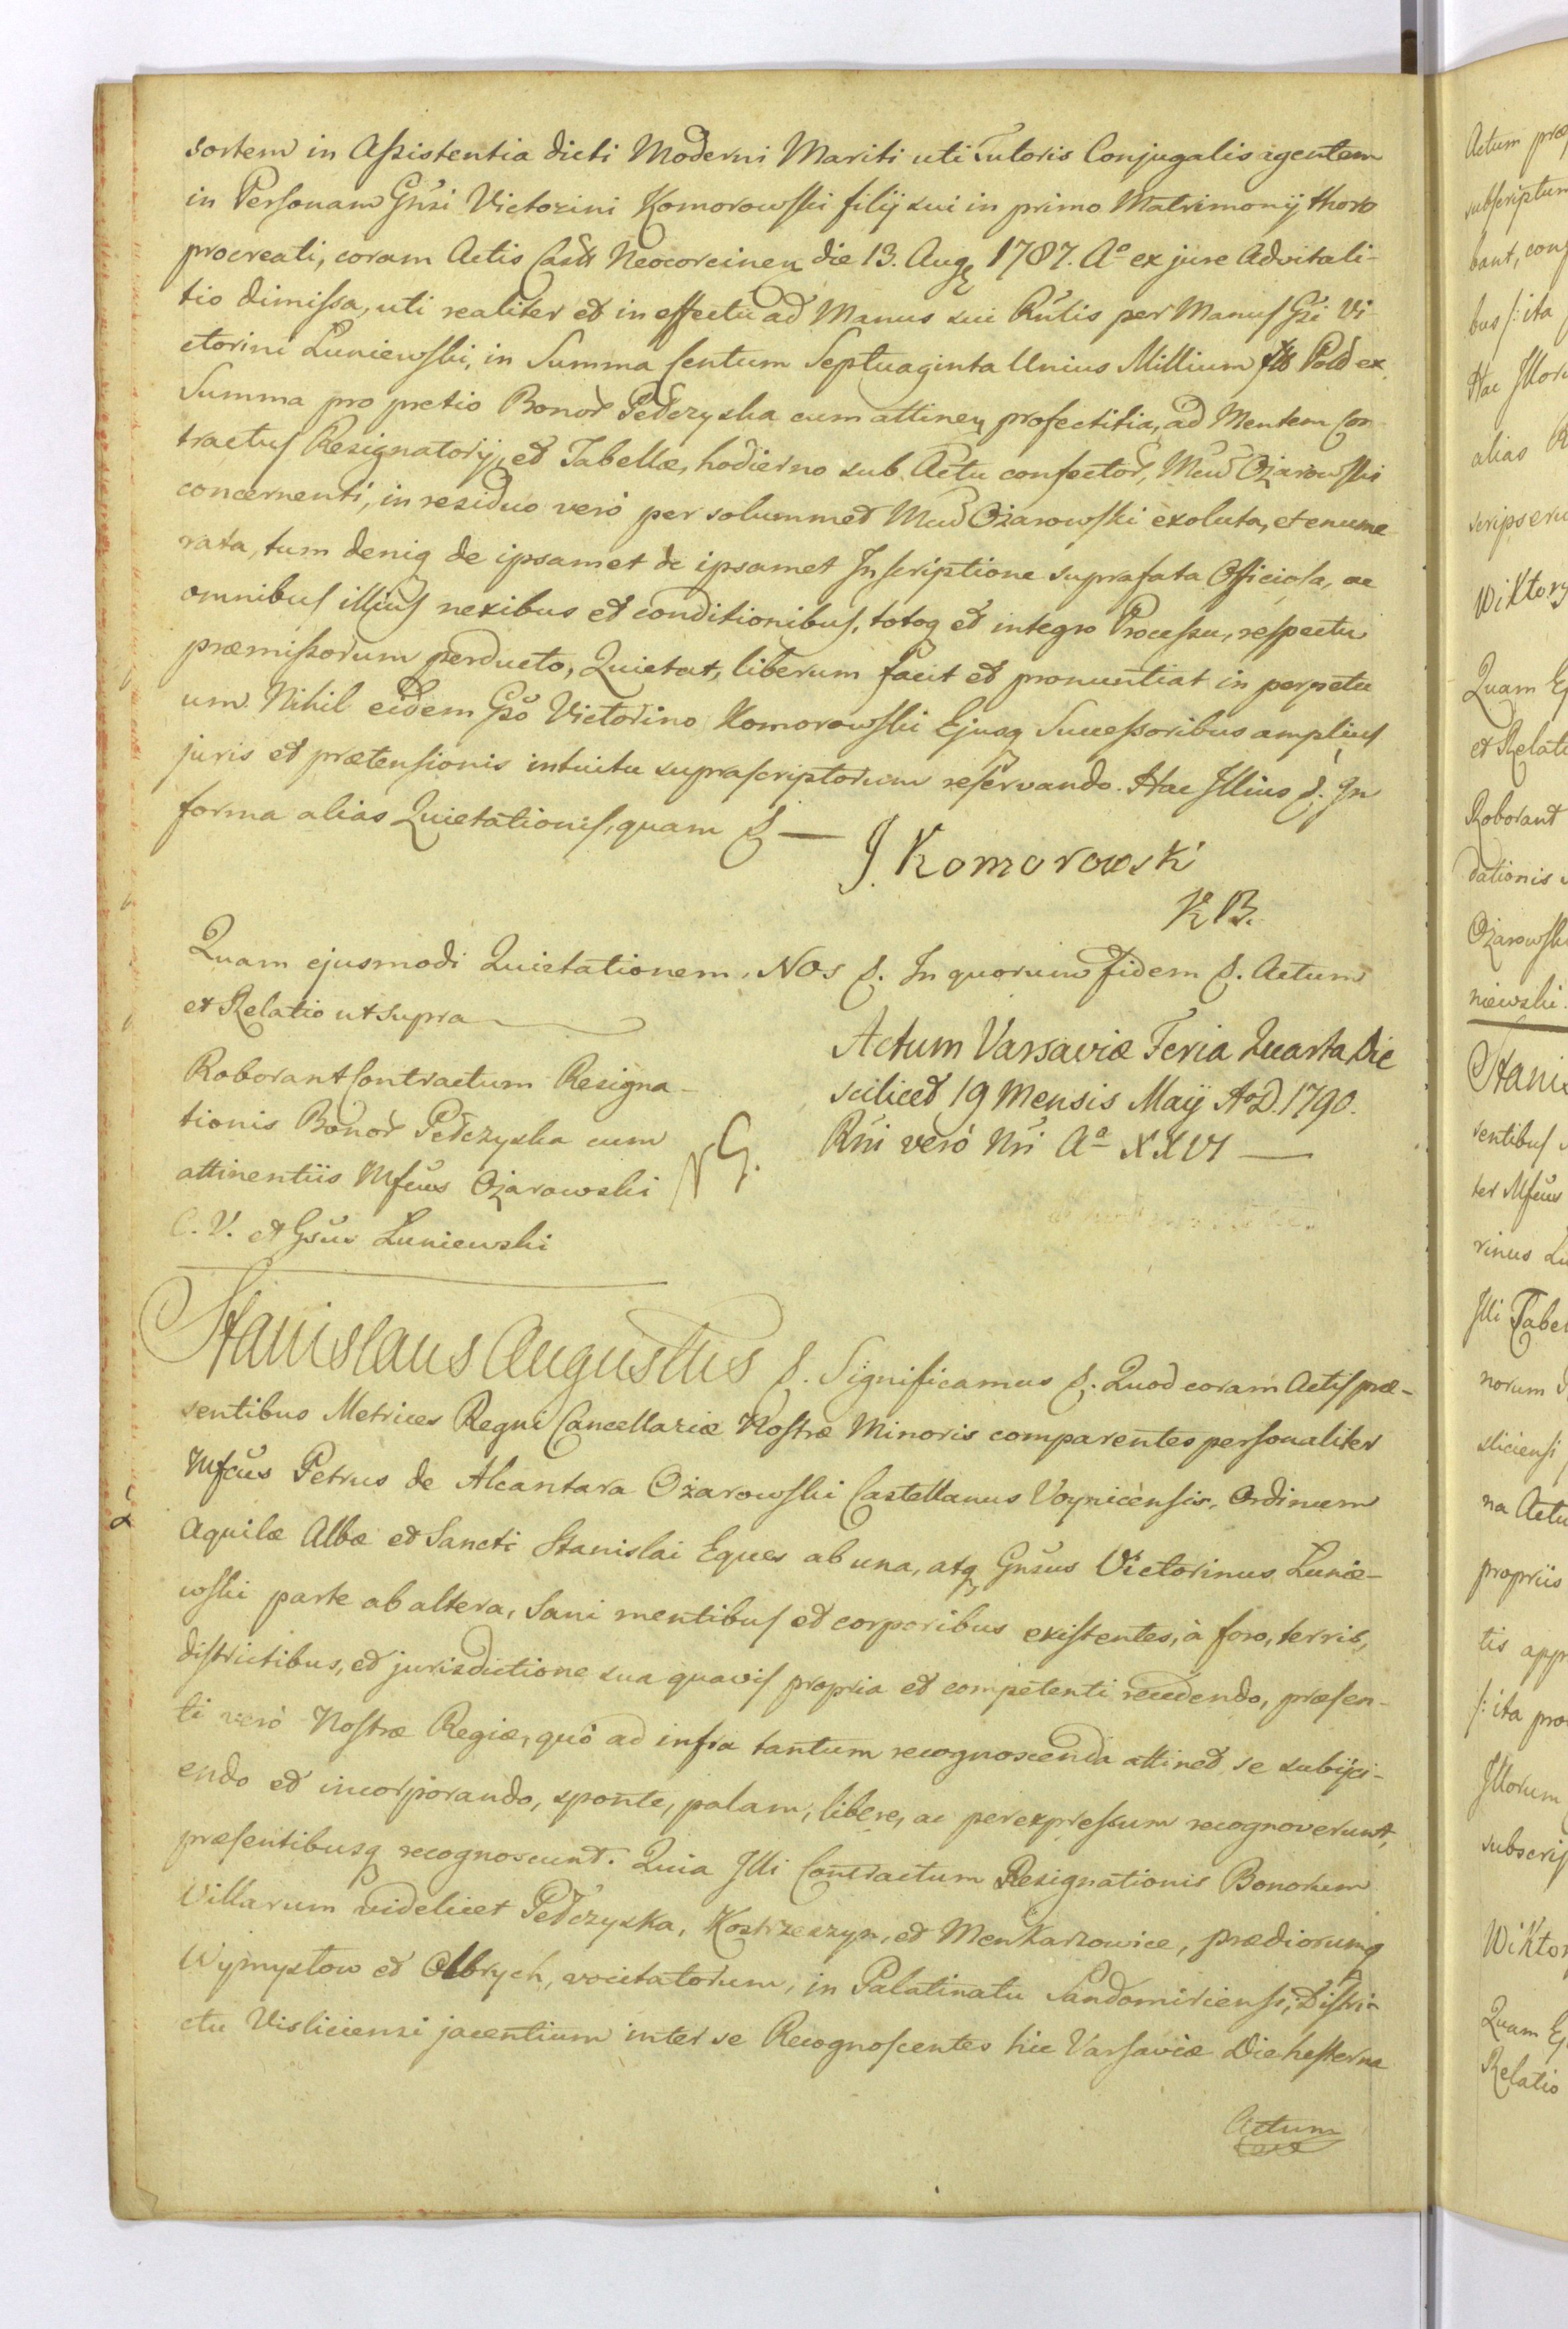 sortem in Assistentia dicti Moderni Mariti uti Tutoris Conjugalis agentem
in Personam Gnsi Victorini Komorowski filij sui in primo Matrimonij thoro
procreati, coram Actis Castr Neocorcinen die 13. Aug 1787. Aº ex jure Advitali-
tio dimissa, uti realiter et in effectu ad Manus sui Rntis per Manus Gsi Vi-
ctorini Luniewski, in Summa Centum Septuaginta Unius Millium flo Pold ex
Summa pro pretio Bonor Pełczyska cum attinen profectitia, ad Mentem Con-
tractus Resignatorij, et Tabellæ, hodierno sub Actu confector, Mcum Ożarowski
concernenti, in residuo verò per solummet Mcum Ożarowski exoluta, et enume
rata, tum deniq de ipsamet de ipsamet Inscriptione suprafata Officiosa, ac
omnibus illius nexibus et conditionibus, totoq et integro Processu, respectu
præmissorum perducto, Quietat, liberum facit et pronuntiat in perpetu
um. Nihil eidem Gso Victorino Komorowski Ejusq Successoribus amplius
juris et prætensionis intuitu suprascriptorum reservando. Hac Illius &. In
forma alias Quietationis, quam & —
J. Komorowski
K B.
Quam ejusmodi Quietationem. Nos &. In quorum fidem &. Actum
et Relatio ut supra
Actum Varsaviæ Feria Quarta Die
scilicet 19 Mensis Maij AoD. 1790.
Rni verò Nri Aº XXVI —
Roborant Contractum Resigna-
tionis Bonor Pełczyska cum
attinentiis Mfcus Ożarowski
C. V. et Gsus Luniewski
NG.
Stanislaus Augustus &. Significamus &. Quod coram Actis præ-
sentibus Metrices Regni Cancellariæ Nostræ Minoris comparentes personaliter
Mfcus Petrus de Alcantara Ożarowski Castellanus Voynicensis, Ordinum
Aquilæ Albæ et Sancti Stanislai Eques ab una, atq Gnsus Victorinus Lunie-
wski parte ab altera, Sani mentibus et corporibus existentes, à foro, terris,
districtibus, et jurisdictione sua quavis propria et competenti recedendo, præsen-
ti verò Nostræ Regiæ, quò ad infra tantum recognoscenda attinet, se subijci-
endo et incorporando, sponte, palam, libere, ac per expressum recognoverunt,
præsentibusq recognoscunt. Quia Illi Contractum Resignationis Bonorum
Villarum videlicet Pełczyska, Kostrzeszyn, et Menkarzowice, prædiorumq
Wymysłow et Olbrych, vocitatorum, in Palatinatu Sandomiriensi, Distri-
ctu Visliciensi jacentium inter se Recognoscentes hic Varsaviæ Die hesterna
Actum
Actum præ
subscriptum
bant, cons
bus /: ita
Hac Illor
alias
scripseru
Wiktory
Quam Ej
et Relati
Roborant
dationis
Ożarowski
niewski.
Stanis
sentibus
ter Mfcus
rinus Lu
Illi Tabel
norum
sliciensi
na Actu
propriis
tis appr
/: ita pro
Illorum
subscrip
Wiktor
Quam Ej
Relatio